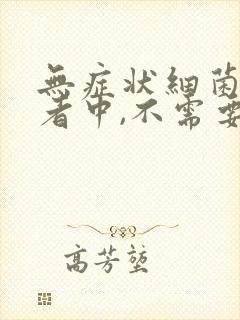 無症状細菌
者中,不需要
高芳堃